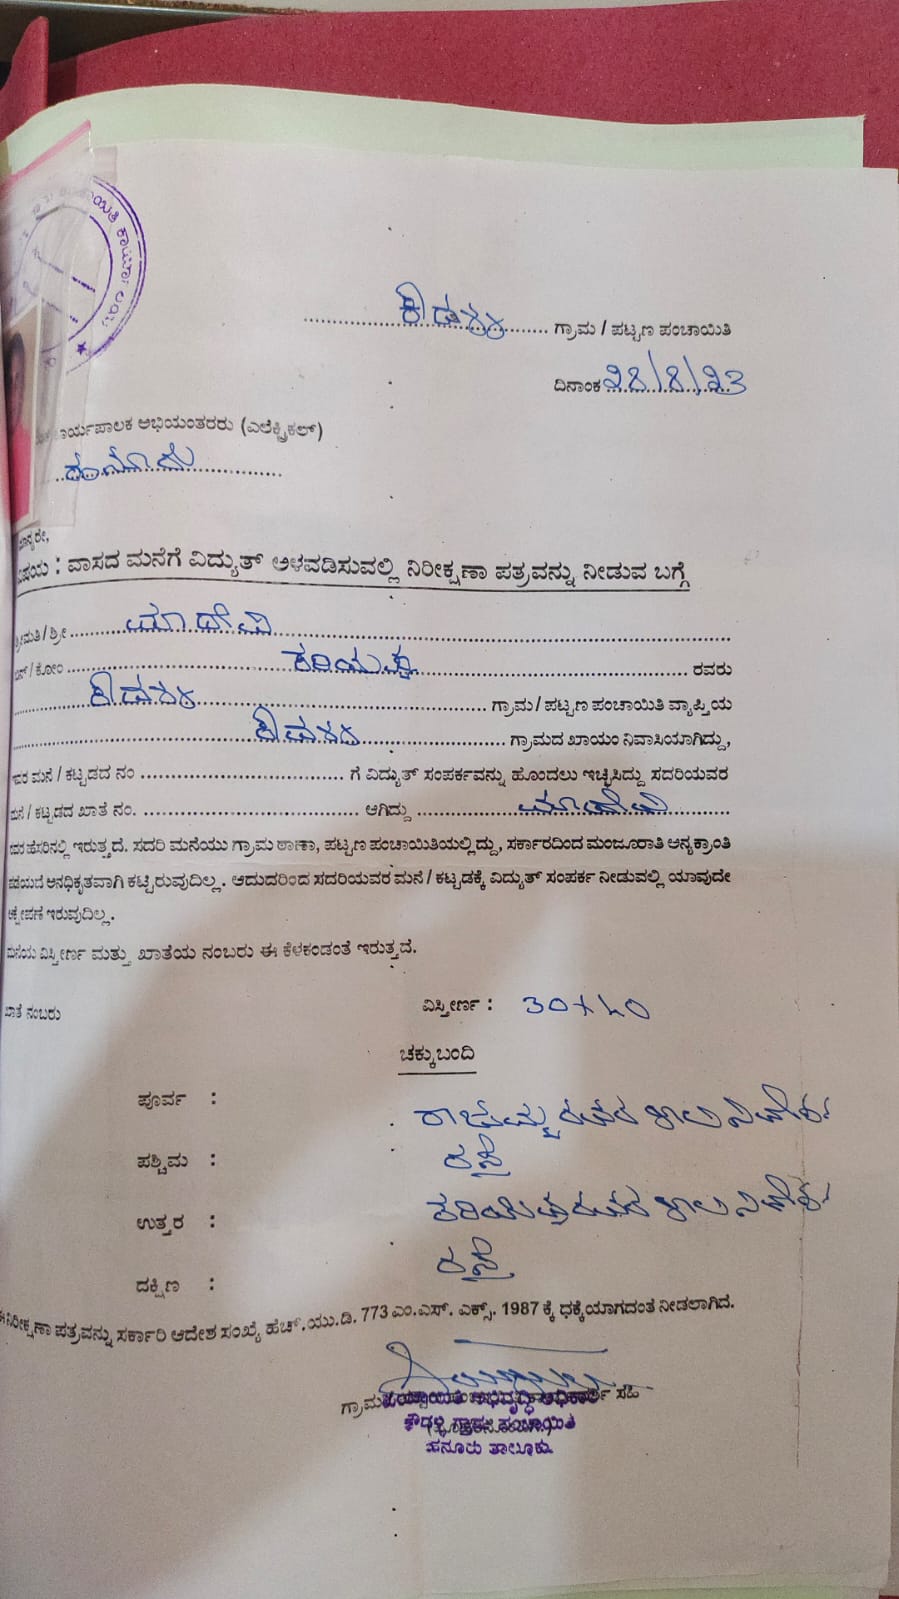 ಗ್ರಾಮ / ಪಟ್ಟಣ ಪಂಚಾಯಿತಿ
ದಿನಾಂಕ ೨೮/೮/೨೩
ಕಾರ್ಯಪಾಲಕ ಅಭಿಯಂತರರು (ಎಲೆಕ್ಟ್ರಿಕಲ್)
ಹನೂರು
ಮಾನ್ಯರೇ,
ವಿಷಯ : ವಾಸದ ಮನೆಗೆ ವಿದ್ಯುತ್ ಅಳವಡಿಸುವಲ್ಲಿ ನಿರೀಕ್ಷಣಾ ಪತ್ರವನ್ನು ನೀಡುವ ಬಗ್ಗೆ
ಶ್ರೀಮತಿ / ಶ್ರೀ ಮಾದೇವಿ
ಬಿನ್ / ಕೋಂ ಕರಿಯಪ್ಪ ರವರು
ಗ್ರಾಮ / ಪಟ್ಟಣ ಪಂಚಾಯಿತಿ ವ್ಯಾಪ್ತಿಯ
ಗ್ರಾಮದ ಖಾಯಂ ನಿವಾಸಿಯಾಗಿದ್ದು,
ಮನೆ / ಕಟ್ಟಡದ ನಂ ಗೆ ವಿದ್ಯುತ್ ಸಂಪರ್ಕವನ್ನು ಹೊಂದಲು ಇಚ್ಛಿಸಿದ್ದು ಸದರಿಯವರ
ಮನೆ / ಕಟ್ಟಡದ ಖಾತೆ ನಂ. ಆಗಿದ್ದು ಮಾದೇವಿ
ರವರ ಹೆಸರಿನಲ್ಲಿ ಇರುತ್ತದೆ. ಸದರಿ ಮನೆಯು ಗ್ರಾಮ ಠಾಣಾ, ಪಟ್ಟಣ ಪಂಚಾಯಿತಿಯಲ್ಲಿದ್ದು, ಸರ್ಕಾರದಿಂದ ಮಂಜೂರಾತಿ ಅನ್ಯಕ್ರಾಂತಿ
ಪಡೆಯದೆ ಅನಧಿಕೃತವಾಗಿ ಕಟ್ಟಿರುವುದಿಲ್ಲ. ಆದುದರಿಂದ ಸದರಿಯವರ ಮನೆ / ಕಟ್ಟಡಕ್ಕೆ ವಿದ್ಯುತ್ ಸಂಪರ್ಕ ನೀಡುವಲ್ಲಿ ಯಾವುದೇ
ಆಕ್ಷೇಪಣೆ ಇರುವುದಿಲ್ಲ.
ಮನೆಯ ವಿಸ್ತೀರ್ಣ ಮತ್ತು ಖಾತೆಯ ನಂಬರು ಈ ಕೆಳಕಂಡಂತೆ ಇರುತ್ತದೆ.
ಖಾತೆ ನಂಬರು ವಿಸ್ತೀರ್ಣ : 30x40
ಚಕ್ಕುಬಂದಿ
ಪೂರ್ವ : ರಾಜಮ್ಮ ರವರ ಖಾಲಿ ನಿವೇಶನ
ಪಶ್ಚಿಮ : ರಸ್ತೆ
ಉತ್ತರ : ಕರಿಯಪ್ಪ ರವರ ಖಾಲಿ ನಿವೇಶನ
ದಕ್ಷಿಣ : ರಸ್ತೆ
ಈ ನಿರೀಕ್ಷಣಾ ಪತ್ರವನ್ನು ಸರ್ಕಾರಿ ಆದೇಶ ಸಂಖ್ಯೆ ಹೆಚ್.ಯು.ಡಿ. 773 ಎಂ.ಎಸ್. ಎಕ್ಸ್. 1987 ಕ್ಕೆ ಧಕ್ಕೆಯಾಗದಂತೆ ನೀಡಲಾಗಿದೆ.
ಗ್ರಾಮ ಸಹಿ
ಪಂಚಾಯಿತಿ ಅಭಿವೃದ್ಧಿ ಅಧಿಕಾರಿ
ಕೌದಳ್ಳಿ ಗ್ರಾಮ ಪಂಚಾಯಿತಿ
ಹನೂರು ತಾಲೂಕು